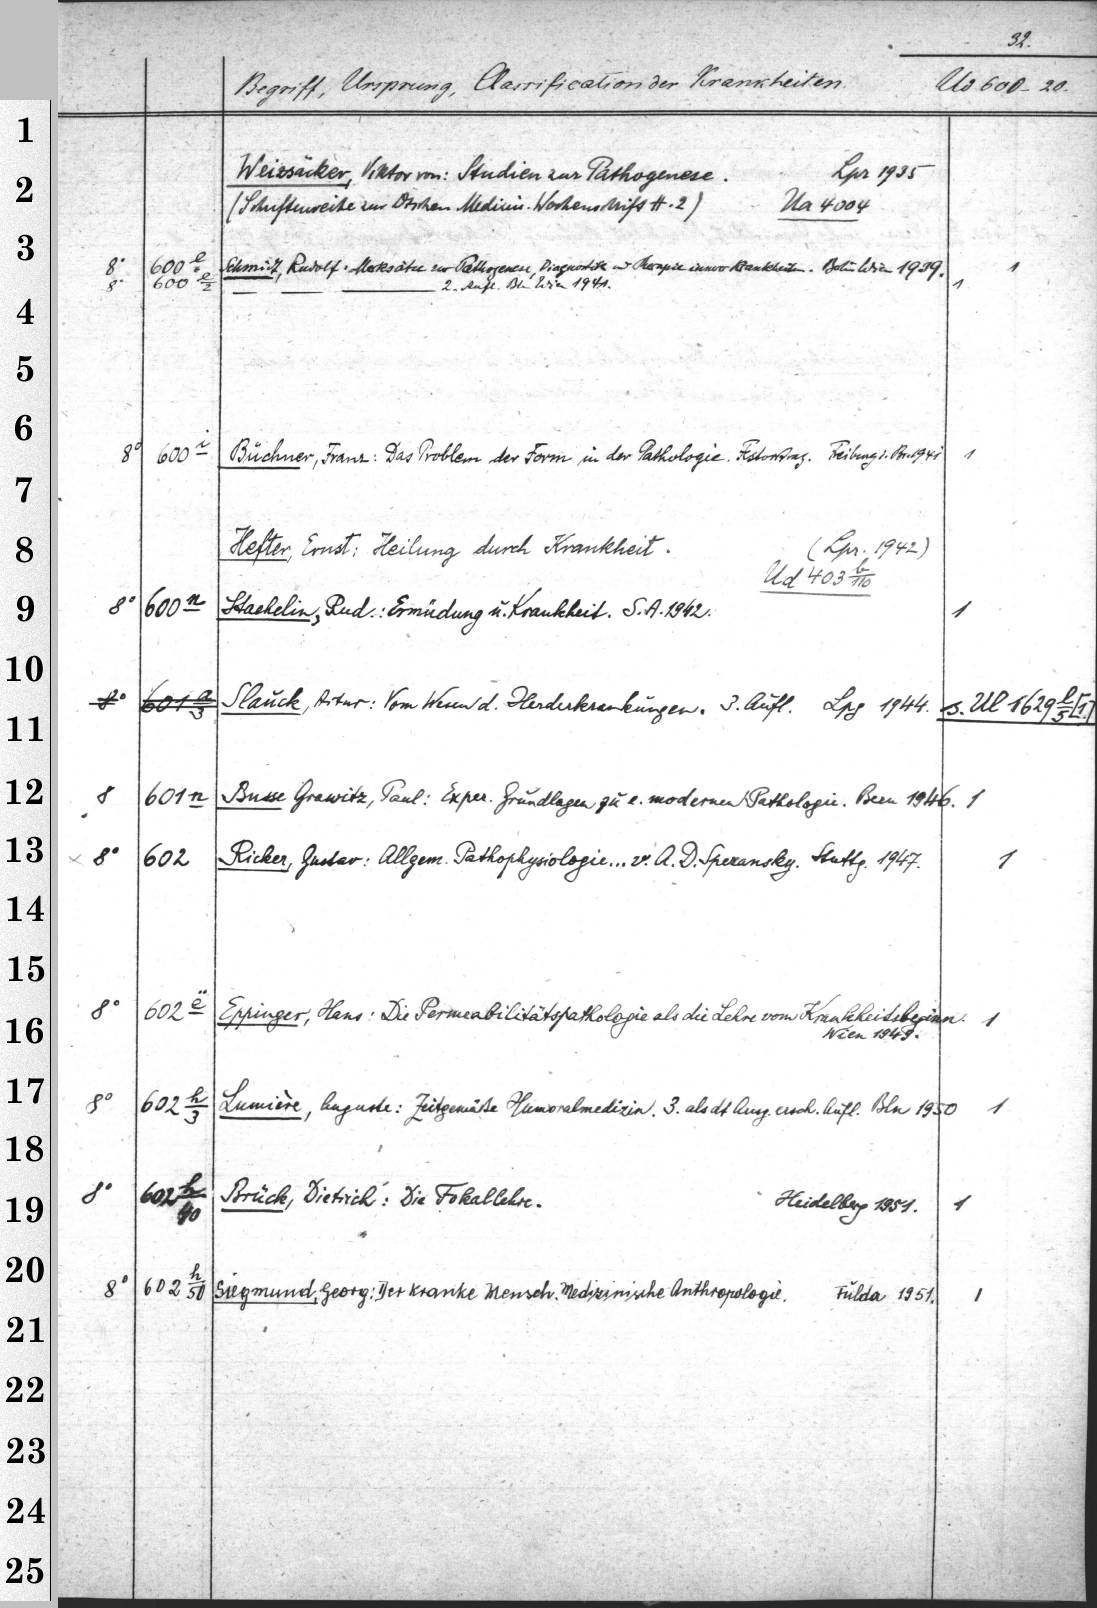 32.
Begriff, Ursprung, Classification der Krankheiten. Ud 600 - 20.
1
2
3
4
5
6
7
8
9
10
11
12
13
14
15
16
17
18
19
20
21
22
23
24
25
Weizsäcker, Viktor von: Studien zur Pathogenese. Lpz 1935
(Schriftenreihe zur Dtschen Medizin. Wochenschrift H. 2) Ua 4004
8° 600 e Schmidt, Rudolf: Merksätze zur Pathogenese, Diagnostik und Therapie innerer Krankheiten. Berlin Wien 1939. 1
8° 600 e/2 — — — 2. Aufl. Bln Wien 1941. 1
8° 600 i Büchner, Franz: Das Problem der Form in der Pathologie. Festvortrag. Freiburg i. Br. 1941 1
Hefter, Ernst: Heilung durch Krankheit. (Lpz. 1942)
Ud 403 b/110
8° 600 n Staehelin, Rud.: Ermüdung u. Krankheit. S.A. 1942. 1
8° 601 a/3 Slauck, Artur: Vom Wesen d. Herderkrankungen. 3. Aufl. Lpg 1944. s. Ul 1629 l/5 [1]
8 601 n Busse Grawitz, Paul: Exper. Grundlagen zu e. modernen Pathologie. Bern 1946. 1
8° 602 Ricker, Gustav: Allgem. Pathophysiologie... v. A. D. Speransky. Stuttg. 1947. 1
8° 602 ë Eppinger, Hans: Die Permeabilitätspathologie als die Lehre vom Krankheitsbeginn. 1
Wien 1949.
8° 602 h/3 Lumière, Auguste: Zeitgemäße Humoralmedizin. 3. als dt Ausg. ersch. Aufl. Bln 1950 1
8° 602 h/40 Brück, Dietrich: Die Fokallehre. Heidelberg 1951. 1
8° 602 h/50 Siegmund, Georg: Der kranke Mensch. Medizinische Anthropologie. Fulda 1951. 1